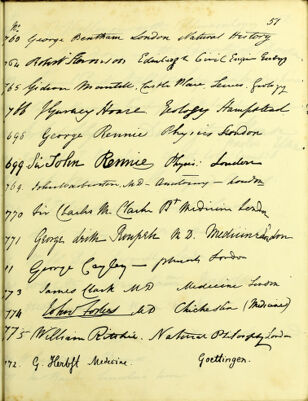 No. 51
760 George Bentham London Natural History
764 Robert Stevenson Edinburgh Civil Engin Geology
765 Gideon Mantell, Castle Place, Lewes. Geology
766 J Gurney Hoare Geology Hampstead
698 George Rennie Physics London
699 Sir John Rennie Physic: London
769. John MD - Anatomy - London
770 Sir Charles M. Clarke Bt Medicine London
771 George M.D. Medicine London
George Cayley - London
773 James Clark MD Medicine London
774 John Forbes MD Chichester (Medicine)
775 William Ritchie. Natural Philosophy London
772. G. Herbst Medicine. Goettingen.